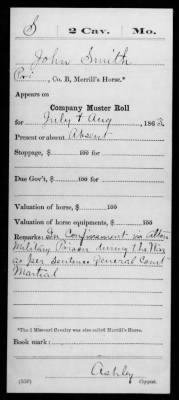 S | 2 Cav. | Mo.
John Smith
Pvt., Co. B, Merrill's Horse.*
Appears on
Company Muster Roll
for July & Aug, 1863.
Present or absent Absent
Stoppage, $ 100 for
Due Gov't, $ 100 for
Valuation of horse, $ 100
Valuation of horse equipments, $ 100
Remarks: In Confinement in Alton
Military Prison during the War
as per sentence General Court
Martial
*The 2 Missouri Cavalry was also called Merrill's Horse.
Book mark:
Ashley
(358) Copyist.